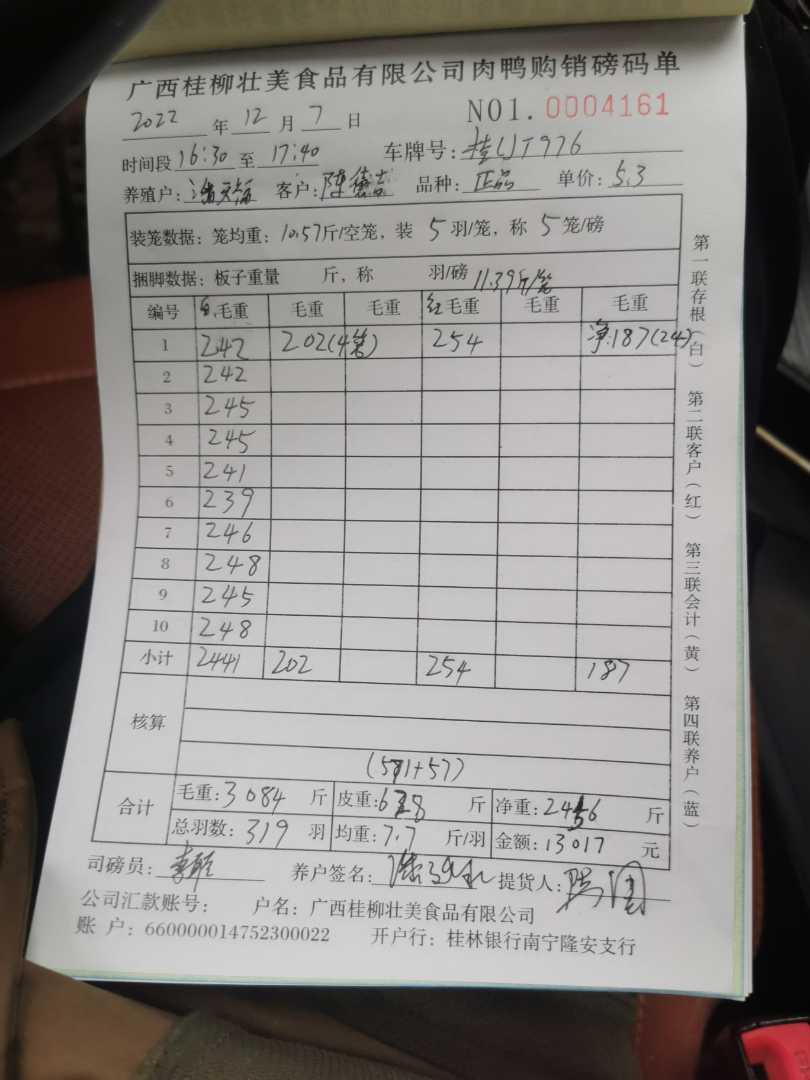 广西桂柳壮美食品有限公司肉鸭购销磅码单
2022 年 12 月 7 日 NO1.0004161
时间段 16:30 至 17:40 车牌号: 桂 976
养殖户: 客户: 陈 品种: 正品 单价: 5.3
装笼数据: 笼均重: 10.57斤/空笼, 装 5 羽/笼, 称 5 笼/磅
捆脚数据: 板子重量 斤, 称 羽/磅 11.39斤/笼
编号 毛重 毛重 毛重 红毛重 毛重 毛重
1 242 202(4笼) 254 净:187(24)
2 242
3 245
4 245
5 241
6 239
7 246
8 248
9 245
10 248
小计 2441 202 254 187
核算
(571+57)
合计 毛重: 3084 斤 皮重: 628 斤 净重: 2456 斤
总羽数: 319 羽 均重: 7.7 斤/羽 金额: 13017 元
司磅员: 养户签名: 提货人:
公司汇款账号: 户名: 广西桂柳壮美食品有限公司
账 户: 660000014752300022 开户行: 桂林银行南宁隆安支行
第一联存根(白) 第二联客户(红) 第三联会计(黄) 第四联养户(蓝)